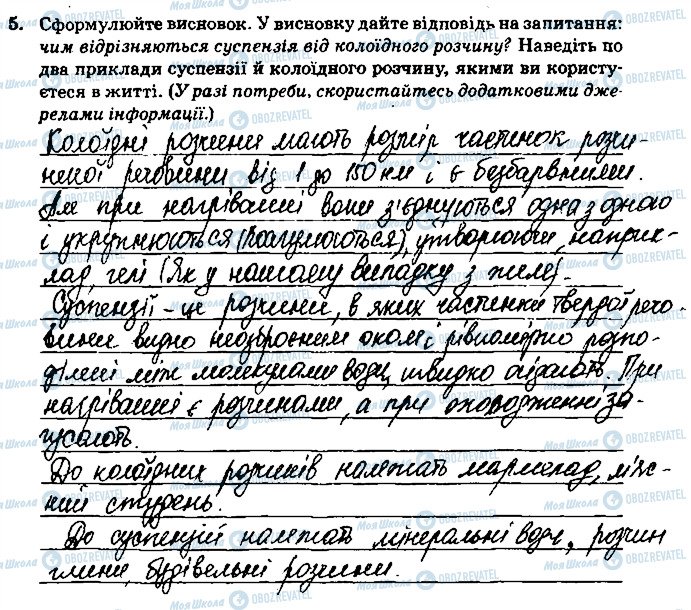 5. Сформулюйте висновок. У висновку дайте відповідь на запитання:
чим відрізняються суспензія від колоїдного розчину? Наведіть по
два приклади суспензії й колоїдного розчину, якими ви користу-
єтеся в житті. (У разі потреби, скористайтесь додатковими дже-
релами інформації.)
Колоїдні розчини мають розмір частинок розчи-
неної речовини від 1 до 150 нм і є безбарвними.
Але при нагріванні вони з'єднуються одна з дною
і укрупнюються (коагулюються), утворюючи, наприк-
лад, гелі (Як у нашому випадку з желе).
Суспензії - це розчини, в яких частинки твердої речо-
вини видно неозброєним оком і рівномірно розпо-
ділені між молекулами води, швидко осідають. При
нагріванні є розчинами, а при охолодженні за-
гусають.
До колоїдних розчинів належать мармелад, м'яс-
ний студень.
До суспензій належать мінеральні води, розчин
глини, будівельні розчини.